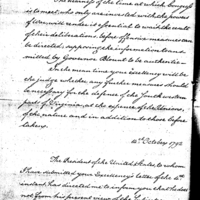 The nearness of the time at which Congress
is to meet, not only
of war, will render it essential to wait the result
of their deliberations, before offensive measures can
be directed, supposing the information trans-
mitted by Governor Blount to be authentic.
In the mean time your Excellency will be
the judge whether any further measures should
be necessary for the defence of the Southwestern
parts of Virginia, at the expense of the
of the nature and in addition to those before
taken.
October 1792
The President of the United States, to whom
I have submitted your Excellency's letter of the
instant, has directed me to inform you that he does
not from his present view of the